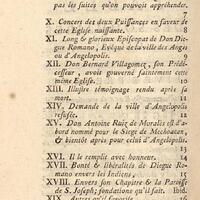 pas les suites qu'on pouvoit appréhender.
X. Concert des deux Puissances en faveur de
cette Eglise naissante. 8
XI. Long & glorieux Episcopat de Don Die-
gue Romano, Evêque de la ville des Anges
ou d'Angelopolis. 9
XII. Don Bernard Villagomez, son Prédé-
cesseur, avoit gouverné saintement cette
même Eglise. 10
XIII. Illustre témoignage rendu après sa
mort.
XIV. Demande de la ville d'Angelopolis
refusée. 12
XV. Don Antoine Ruïz de Moralis est d'a-
bord nommé pour le Siege de Mechoacan,
& bientôt après pour celui d'Angelopolis.
XVI. Il le remplit avec honneur. 14
XVII. Bonté & libéralités de Diegue Ro-
mano envers les Indiens. 16
XVIII. Envers son Chapitre & la Paroisse
de S. Joseph; fondations qu'il fait. Ibid.
XIX.